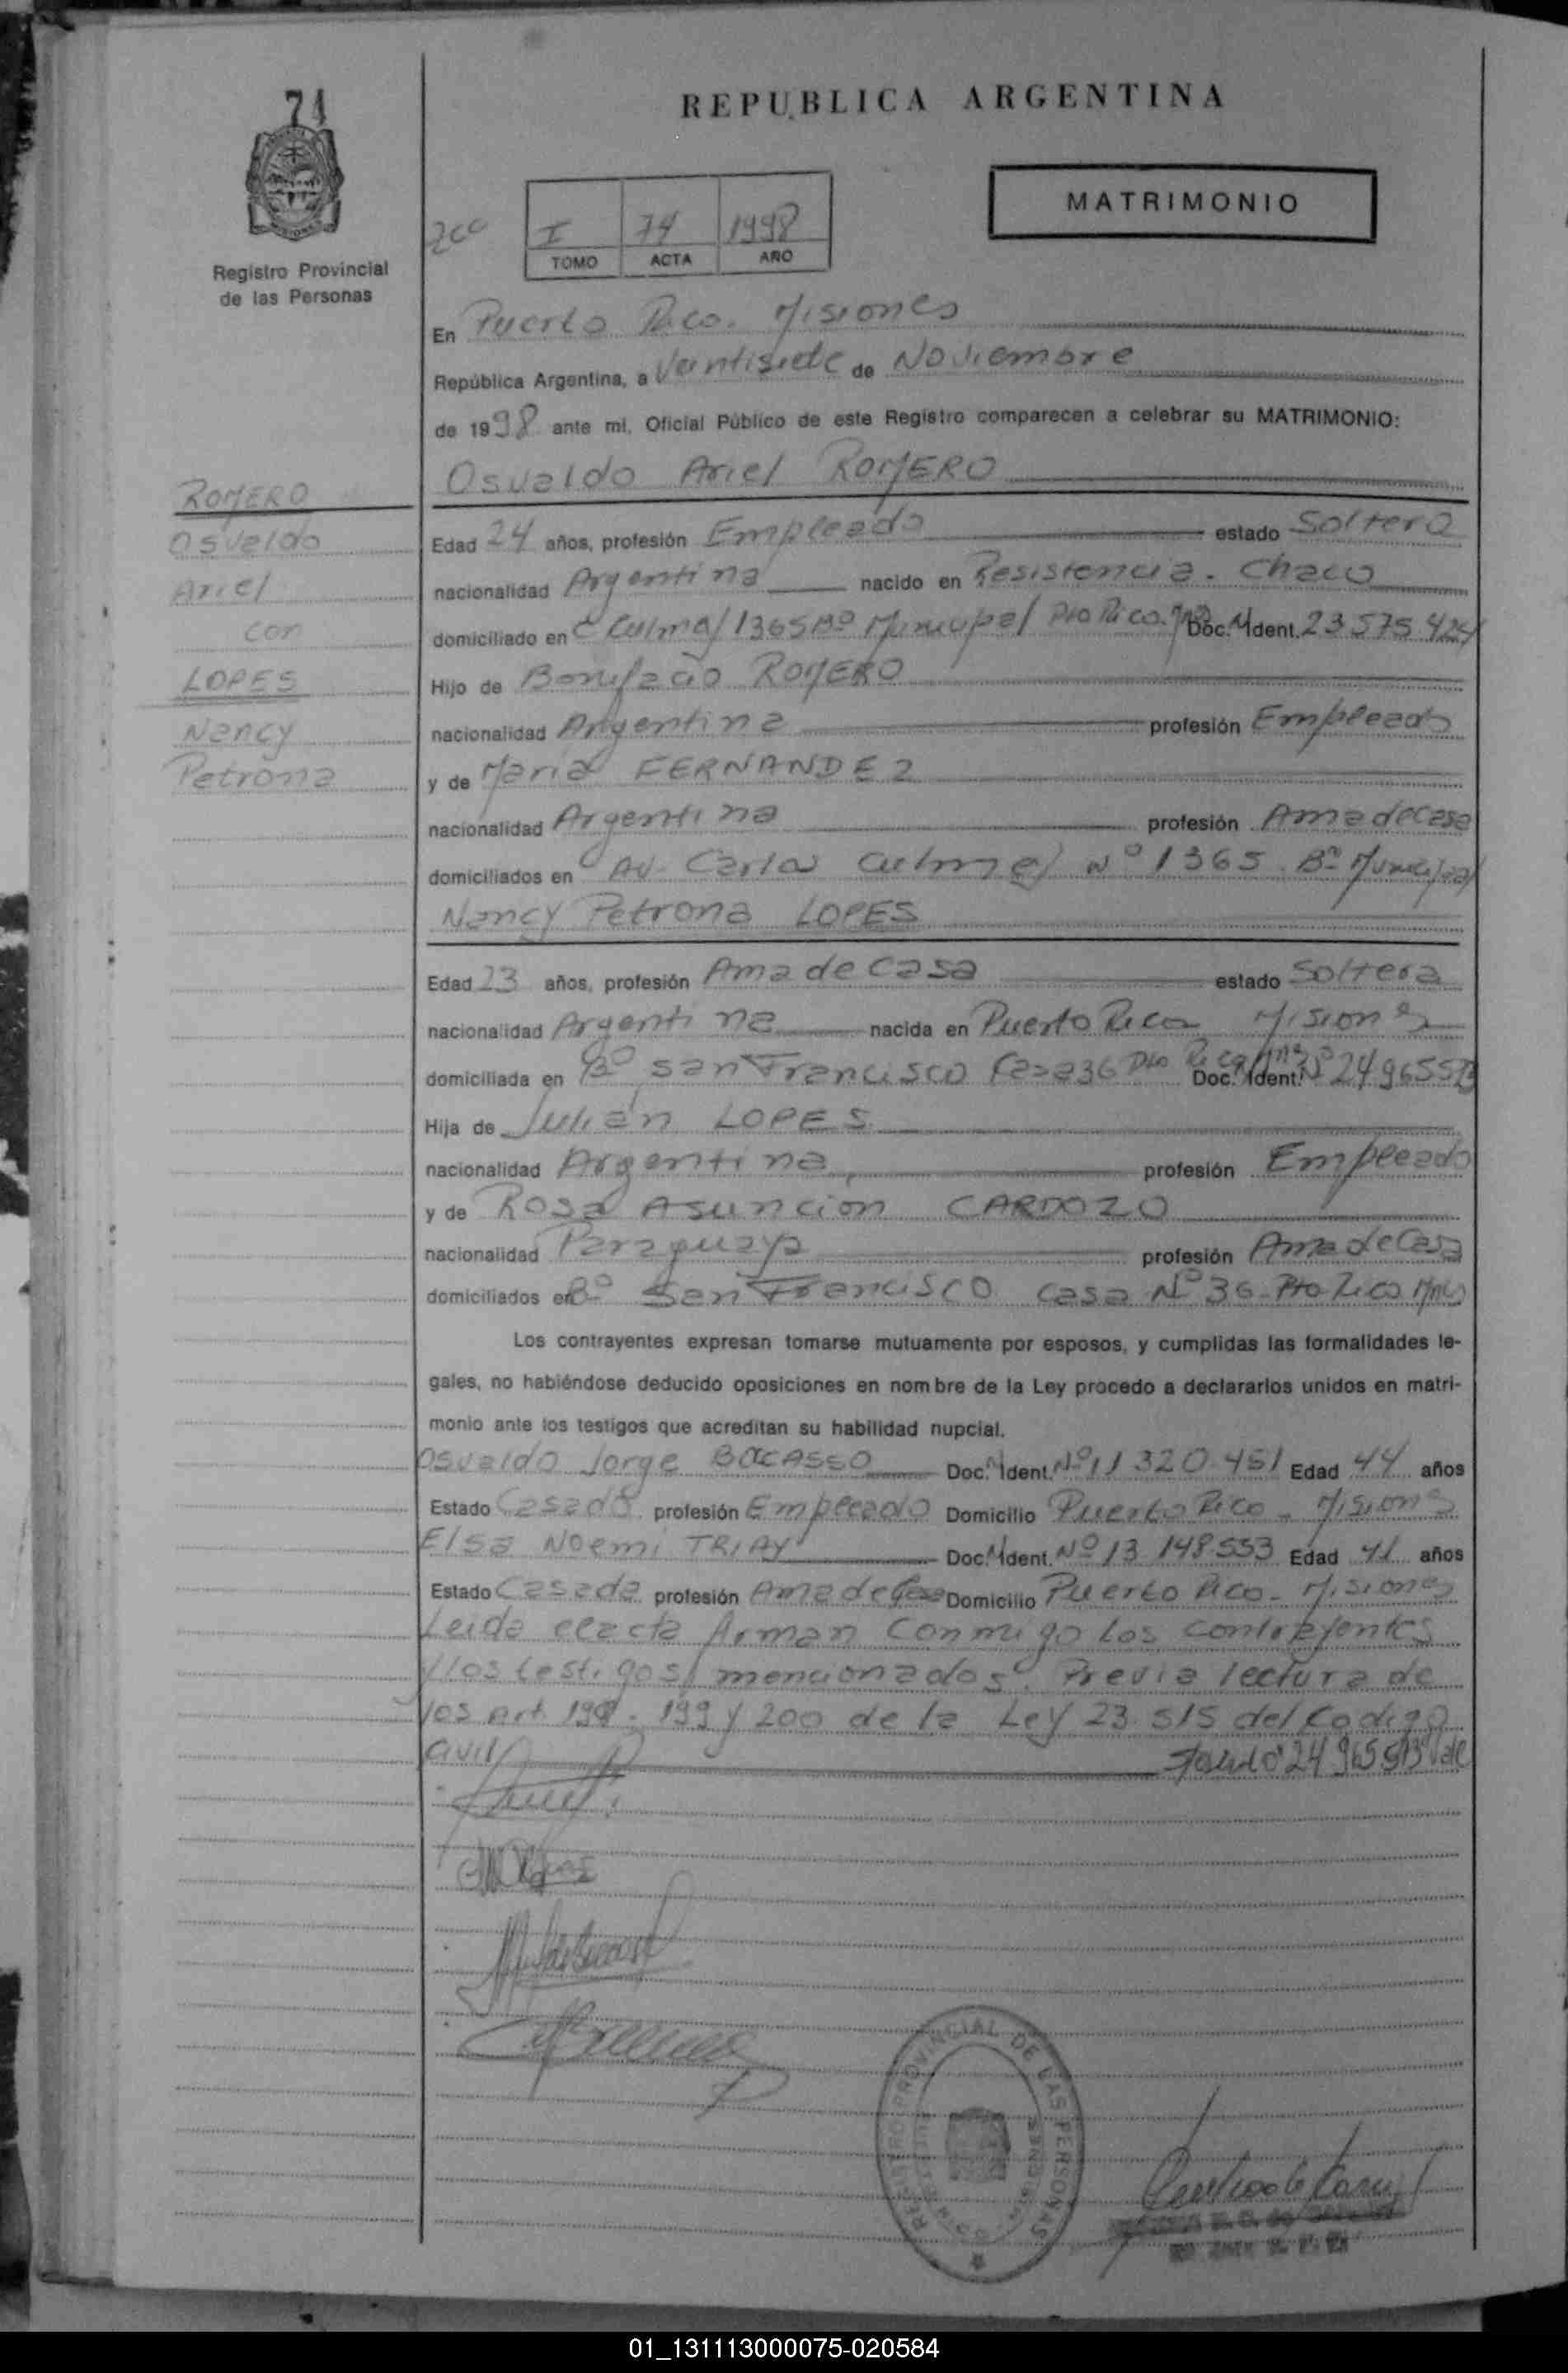 74
REPUBLICA ARGENTINA
MATRIMONIO
I 74 1998
TOMO ACTA AÑO
Registro Provincial
de las Personas
En Puerto Rico. Misiones
República Argentina, a Veintisiete de Noviembre
de 1998 ante mi, Oficial Público de este Registro comparecen a celebrar su MATRIMONIO:
Osvaldo Ariel ROMERO
ROMERO
Osvaldo
Ariel
con
LOPES
Nancy
Petrona
Edad 24 años, profesión Empleado estado Soltero
nacionalidad Argentina nacido en Resistencia - Chaco
domiciliado en C. Culmey 1365 Bº Municipal Pto Rico. Doc. Ident. 23 575 424
Hijo de Bonifacio ROMERO
nacionalidad Argentina profesión Empleado
y de Maria FERNANDEZ
nacionalidad Argentina profesión Ama de Casa
domiciliados en Av. Carlos Culmey Nº 1365 Bº Municipal
Nancy Petrona LOPES
Edad 23 años, profesión Ama de Casa estado Soltera
nacionalidad Argentina nacida en Puerto Rico Misiones
domiciliada en Bº San Francisco Casa 36 Pto Rico Doc. Ident. Nº 24965513
Hija de Julián LOPES
nacionalidad Argentina profesión Empleado
y de Rosa Asuncion CARDOZO
nacionalidad Paraguaya profesión Ama de Casa
domiciliados en Bº San Francisco Casa Nº 36 - Pto Rico Mnes
Los contrayentes expresan tomarse mutuamente por esposos, y cumplidas las formalidades le-
gales, no habiéndose deducido oposiciones en nombre de la Ley procedo a declararlos unidos en matri-
monio ante los testigos que acreditan su habilidad nupcial.
Osvaldo Jorge BOCASSO Doc. Ident. Nº 11 320 451 Edad 44 años
Estado Casado profesión Empleado Domicilio Puerto Rico - Misiones
Elsa Noemi TRIAY Doc. Ident. Nº 13 148 553 Edad 41 años
Estado Casada profesión Ama de Casa Domicilio Puerto Rico - Misiones
Leida el acta firman conmigo los contrayentes
y los testigos mencionados. Previa lectura de
los art. 198 - 199 y 200 de la Ley 23.515 del Codigo
Civil 24 965 513 Vale
REGISTRO PROVINCIAL DE LAS PERSONAS
MISIONES
01_131113000075-020584